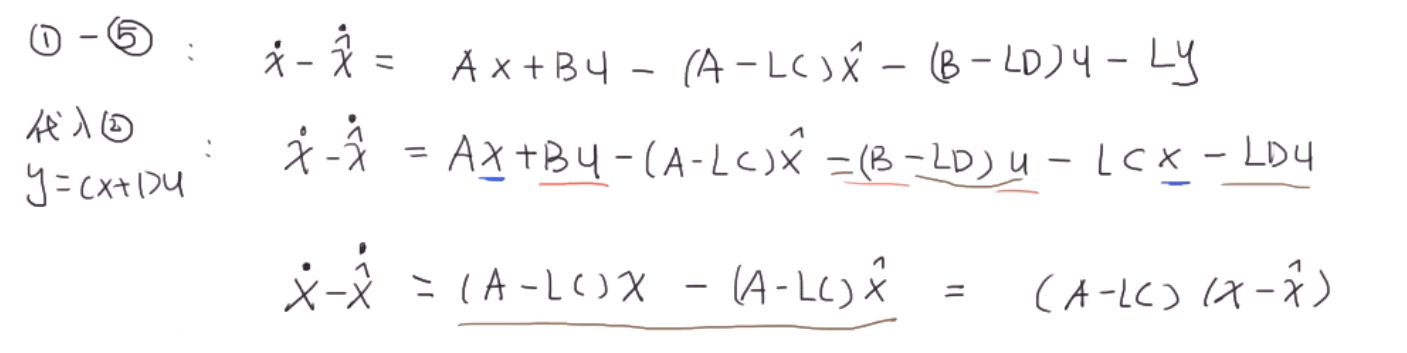 ① - ⑤ : ẋ - x̂̇ = Ax + Bu - (A - LC)x̂ - (B - LD)u - Ly
代入②
y = Cx + Du : ẋ - x̂̇ = Ax + Bu - (A - LC)x̂ - (B - LD)u - LCx - LDu
ẋ - x̂̇ = (A - LC)x - (A - LC)x̂ = (A - LC)(x - x̂)